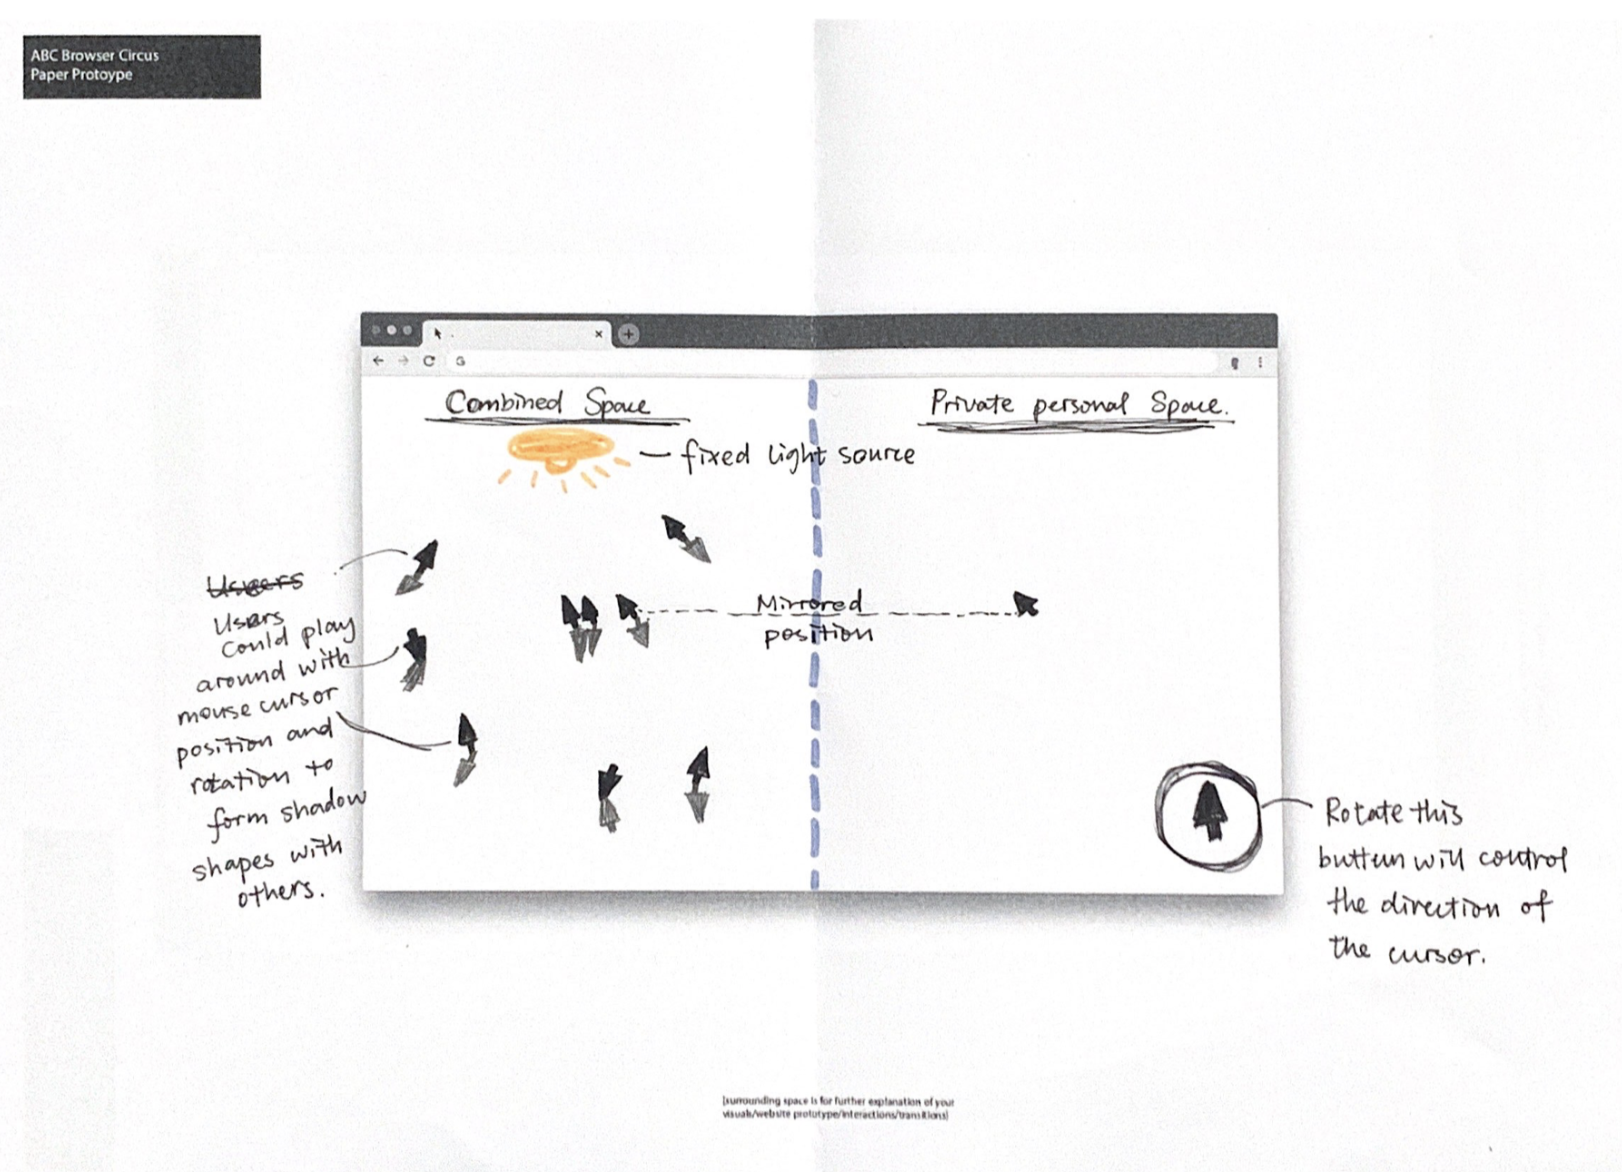 ABC Browser Circus
Paper Protoype
Combined Space
Private personal Space.
— fixed light source
Users
Users
Could play
around with
mouse cursor
position and
rotation to
form shadow
shapes with
others.
Mirrored
position
Rotate this
buttun will control
the direction of
the cursor.
[surrounding space is for further explanation of your
visuals/website prototype/interactions/transitions]